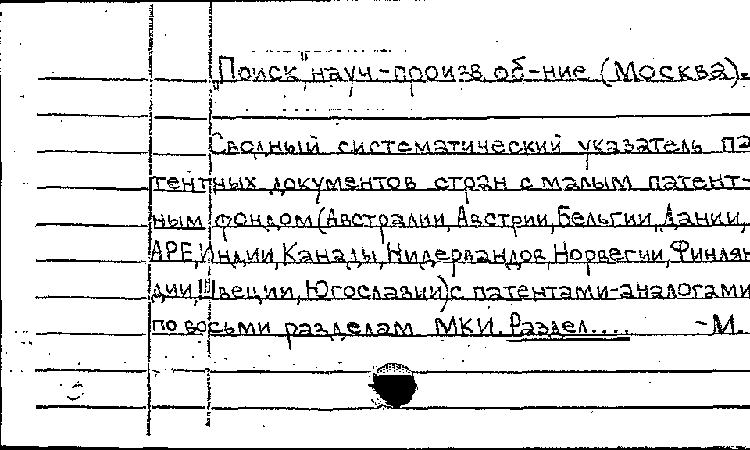 „Поиск" науч-произв об-ние (Москва).
Сводный систематический указатель па
тентных документов стран с малым патент-
ным фондом (Австралии, Австрии, Бельгии, Дании,
АРЕ, Индии, Канады, Нидерландов, Норвегии, Финлян
дии, Швеции, Югославии) с патентами-аналогами
по восьми разделам МКИ. Раздел.... -М.